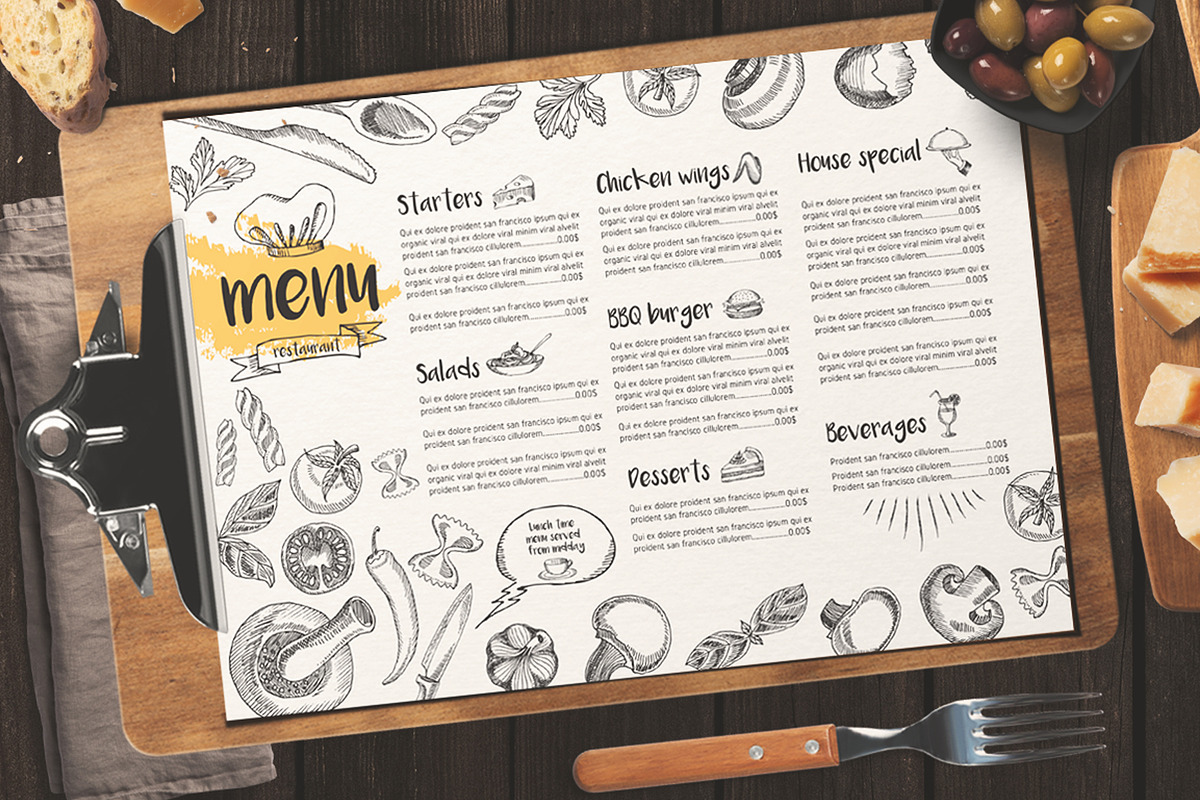 menu
restaurant
Starters
Qui ex dolore proident san francisco ipsum qui ex
organic viral qui ex dolore viral minim viral alvelit
proident san francisco cillulorem................0.00$
Qui ex dolore proident san francisco ipsum qui ex
organic viral qui ex dolore viral minim viral alvelit
proident san francisco cillulorem................0.00$
Qui ex dolore proident san francisco ipsum qui ex
proident san francisco cillulorem................0.00$
Salads
Qui ex dolore proident san francisco ipsum qui ex
proident san francisco cillulorem................0.00$
Qui ex dolore proident san francisco ipsum qui ex
proident san francisco cillulorem................0.00$
Qui ex dolore proident san francisco ipsum qui ex
organic viral qui ex dolore viral minim viral alvelit
proident san francisco cillulorem................0.00$
Lunch time
menu served
from midday
Chicken wings
Qui ex dolore proident san francisco ipsum qui ex
organic viral qui ex dolore viral minim viral alvelit
proident san francisco cillulorem................0.00$
Qui ex dolore proident san francisco ipsum qui ex
organic viral qui ex dolore viral minim viral alvelit
proident san francisco cillulorem................0.00$
BBQ burger
Qui ex dolore proident san francisco ipsum qui ex
organic viral qui ex dolore viral minim viral alvelit
proident san francisco cillulorem................0.00$
Qui ex dolore proident san francisco ipsum qui ex
organic viral qui ex dolore viral minim viral alvelit
proident san francisco cillulorem................0.00$
Qui ex dolore proident san francisco ipsum qui ex
proident san francisco cillulorem................0.00$
Desserts
Qui ex dolore proident san francisco ipsum qui ex
proident san francisco cillulorem................0.00$
Qui ex dolore proident san francisco ipsum qui ex
proident san francisco cillulorem................0.00$
House special
Qui ex dolore proident san francisco ipsum qui ex
organic viral qui ex dolore viral minim viral alvelit
proident san francisco cillulorem................0.00$
Qui ex dolore proident san francisco ipsum qui ex
organic viral qui ex dolore viral minim viral alvelit
proident san francisco cillulorem................0.00$
Qui ex dolore proident san francisco ipsum qui ex
organic viral qui ex dolore viral minim viral alvelit
proident san francisco cillulorem................0.00$
Qui ex dolore proident san francisco ipsum qui ex
proident san francisco cillulorem................0.00$
Qui ex dolore proident san francisco ipsum qui ex
organic viral qui ex dolore viral minim viral alvelit
proident san francisco cillulorem................0.00$
Beverages
Proident san francisco cillulorem................0.00$
Proident san francisco cillulorem................0.00$
Proident san francisco cillulorem................0.00$